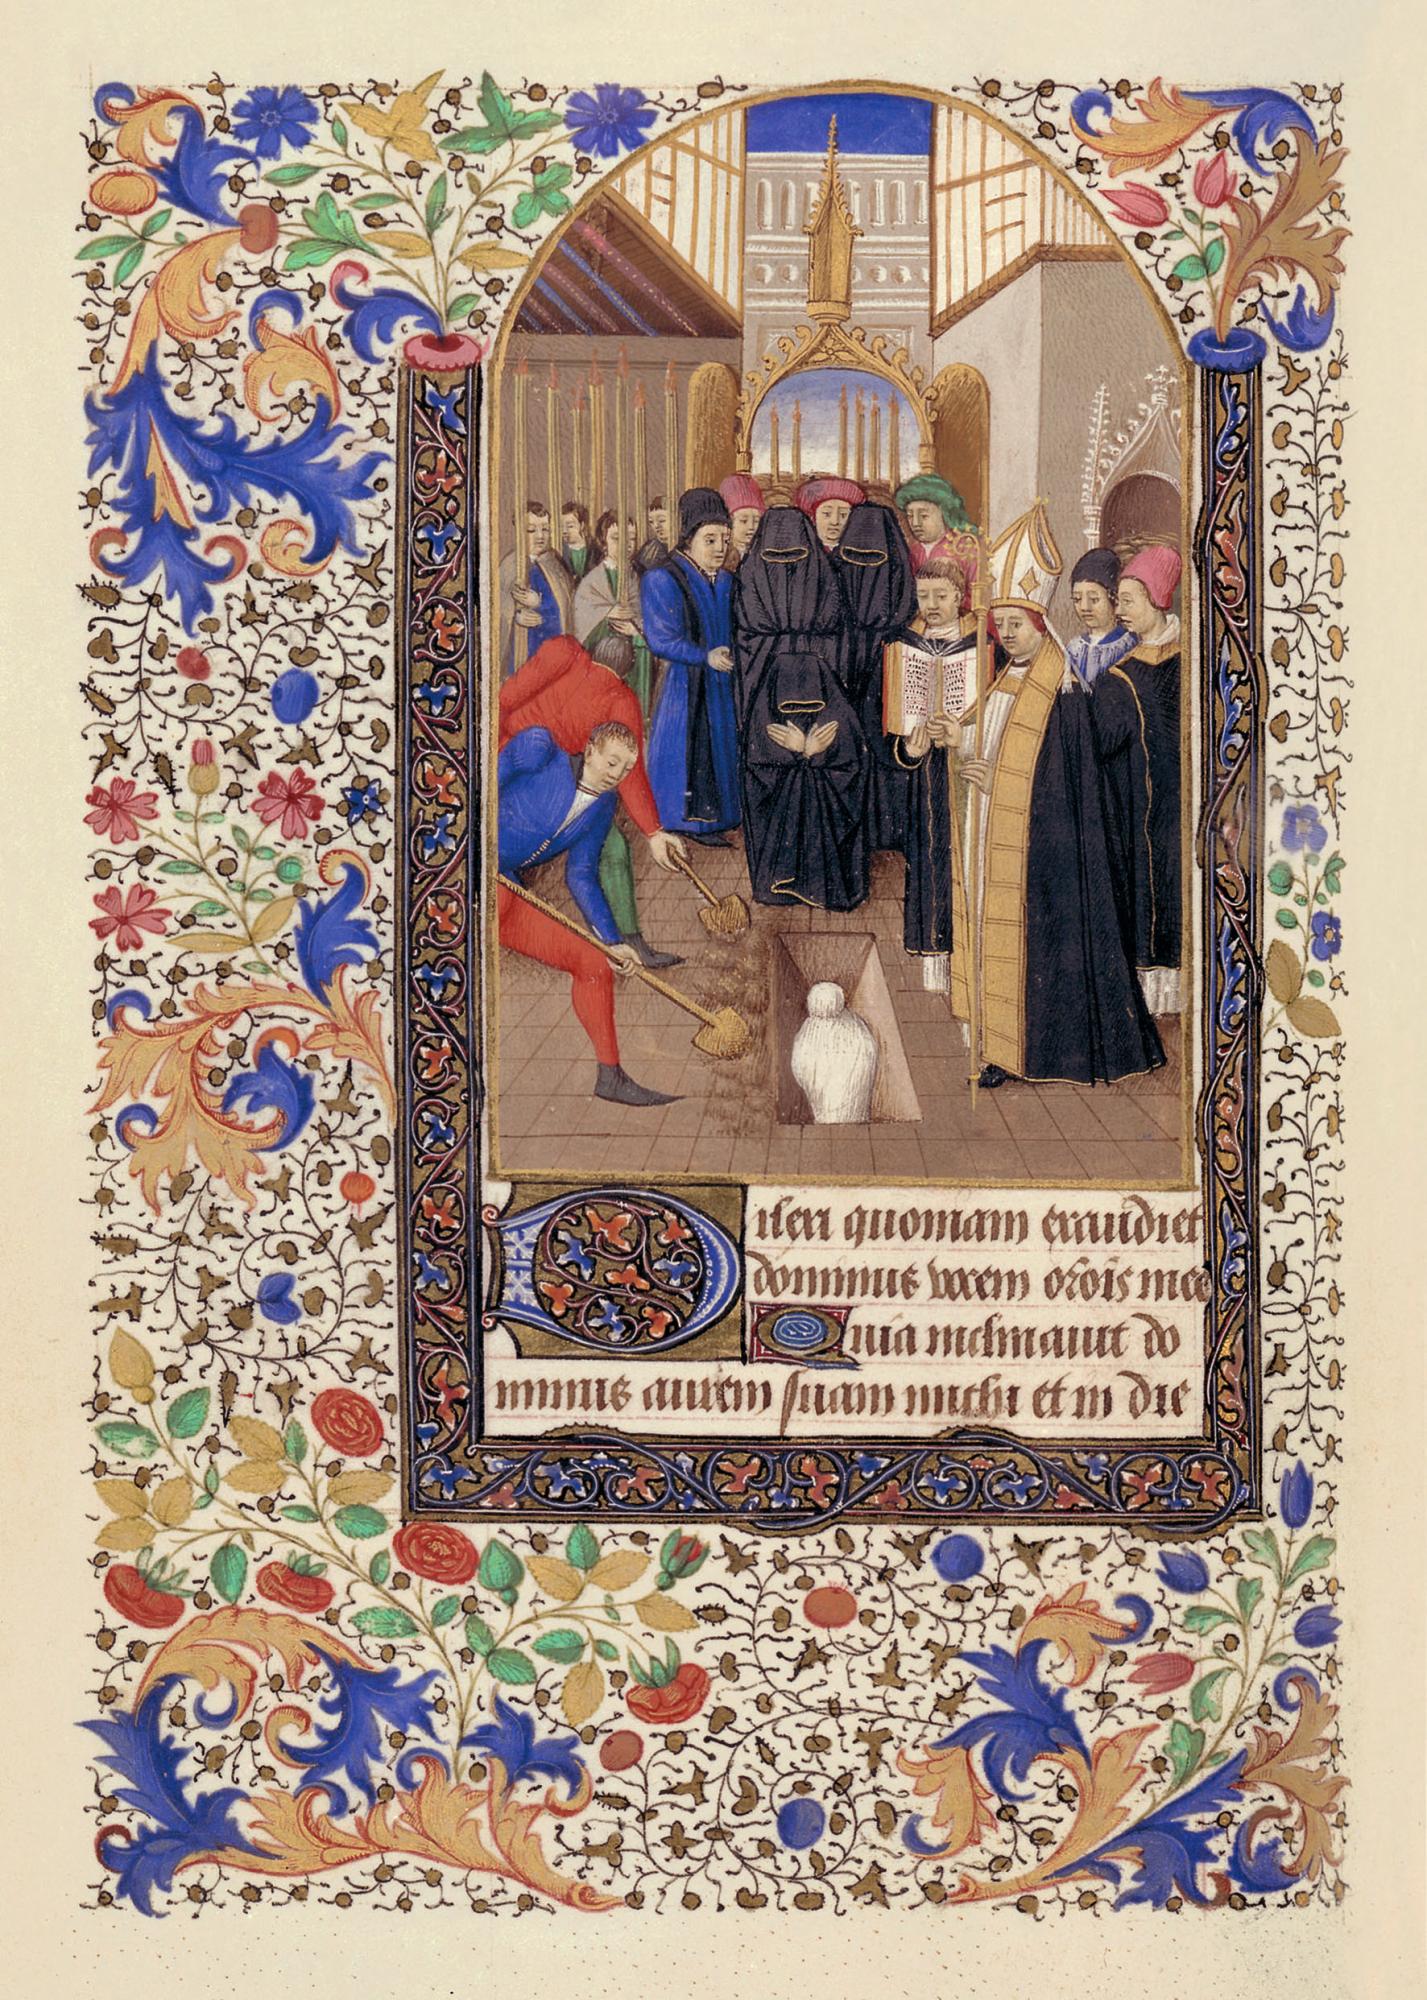 Dilexi quoniam exaudiet
dominus vocem orōis mee
Quia inclinavit do
minus aurem suam michi et in die